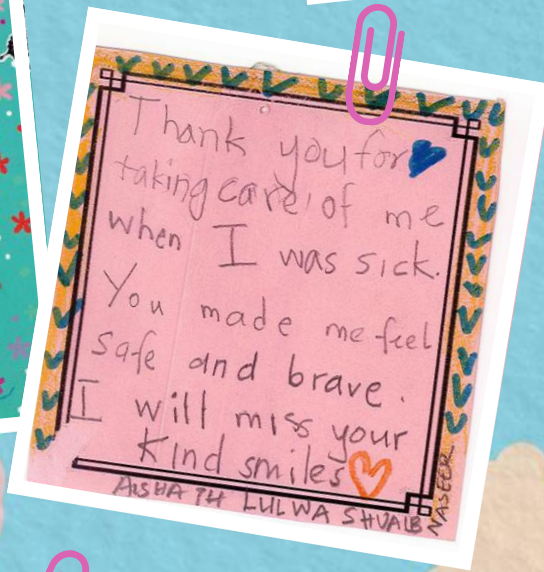 Thank you for
taking care of me
when I was sick.
You made me feel
safe and brave.
I will miss your
kind smiles
AISHATH LULWA SHUAIB
NASEER